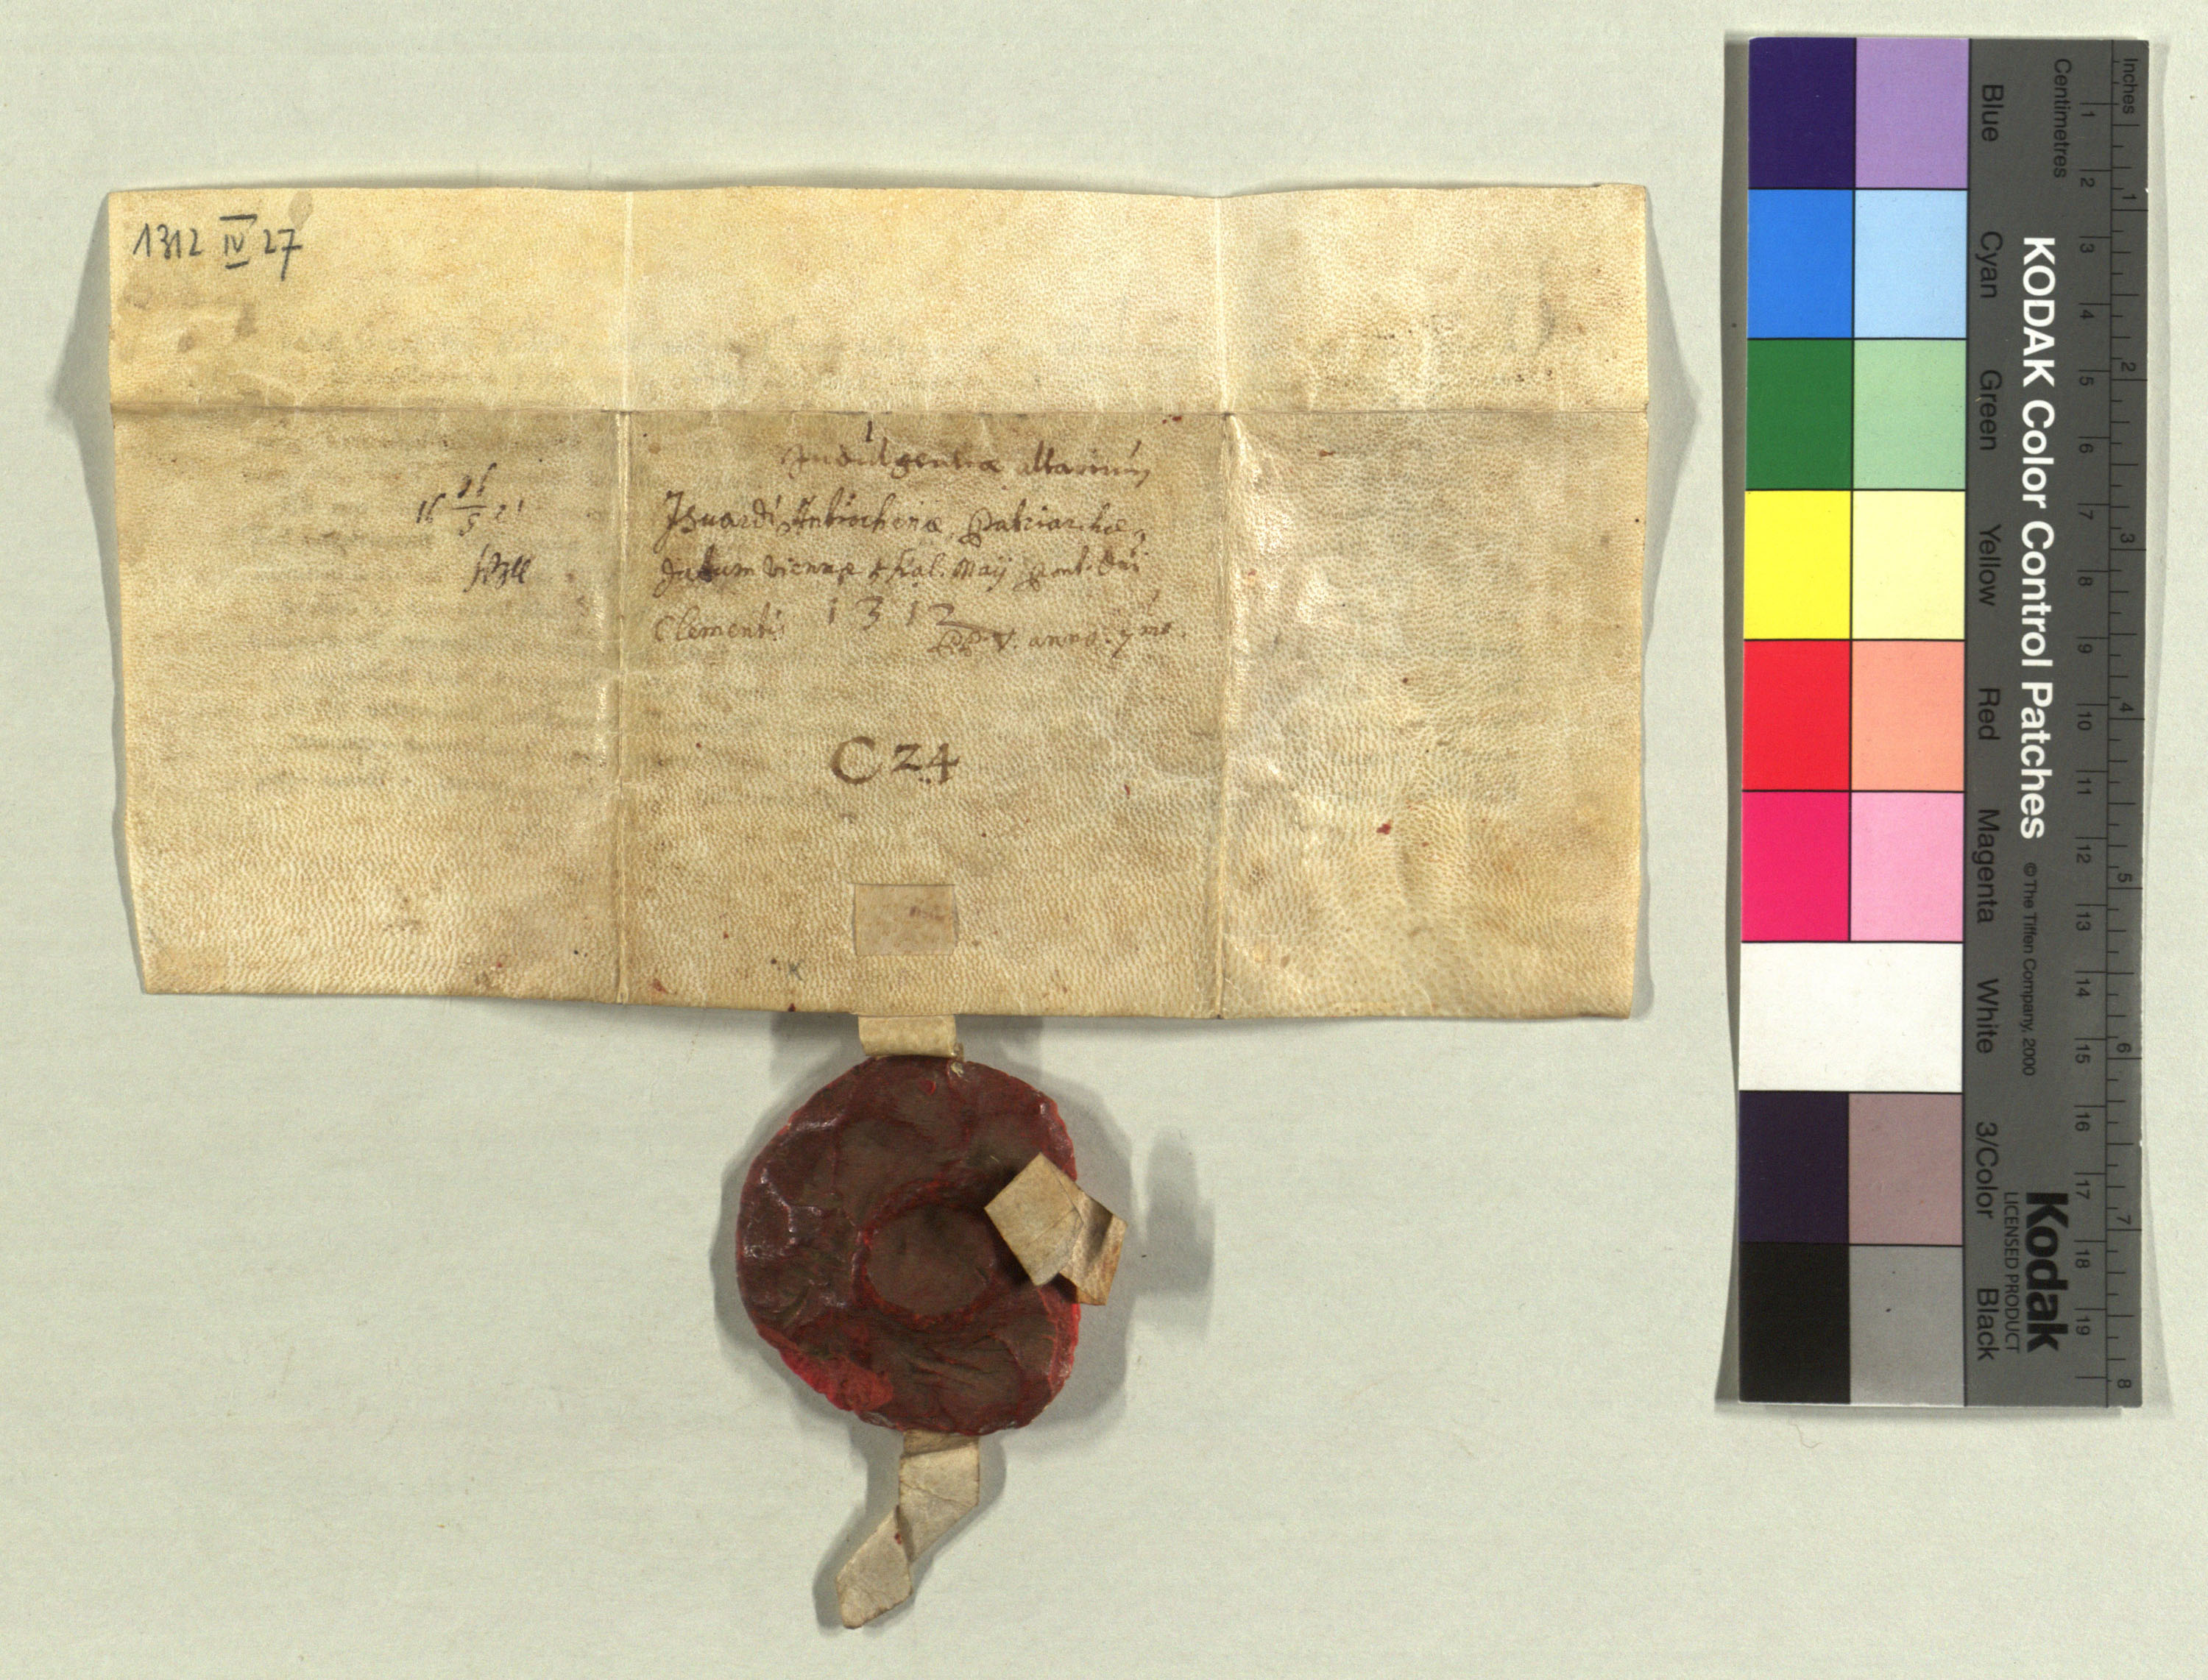 1312 IV 27
1
Indulgentiæ altarium
Isnardi Antiochenæ Patriarchæ,
Datum Viennæ 5 Kal. Maij Pont. Dni
Clementis 1312 PP. V. anno 7mo.
16 26/5 21
C 24
KODAK Color Control Patches © The Tiffen Company, 2000
Kodak
LICENSED PRODUCT
Inches 1 2 3 4 5 6 7 8
Centimetres 1 2 3 4 5 6 7 8 9 10 11 12 13 14 15 16 17 18 19
Blue Cyan Green Yellow Red Magenta White 3/Color Black